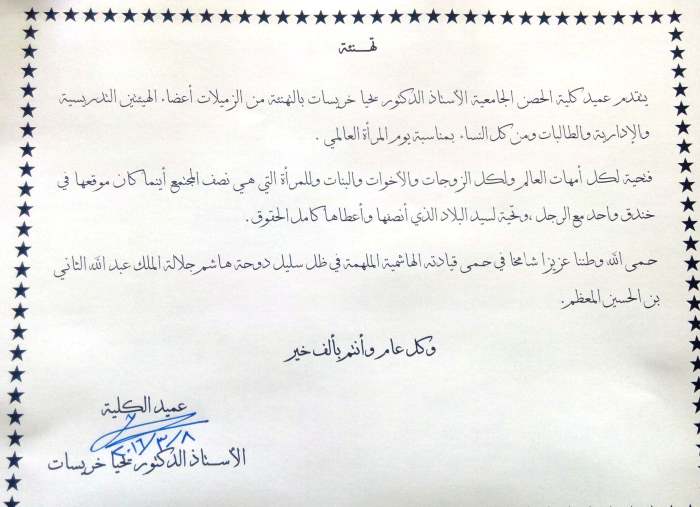 تهـنئة
يتقدم عميد كلية الحصن الجامعية الأستاذ الدكتور يحيا خريسات بالتهنئة من الزميلات أعضاء الهيئتين التدريسية
والإدارية والطالبات ومن كل النساء بمناسبة يوم المرأة العالمي .
فتحية لكل أمهات العالم ولكل الزوجات والأخوات والبنات وللمرأة التي هي نصف المجتمع أينما كان موقعها في
خندق واحد مع الرجل ،وتحية لسيد البلاد الذي أنصفها وأعطاها كامل الحقوق .
حمى الله وطننا عزيزا شامخا في حمى قيادته الهاشمية الملهمة في ظل سليل دوحة هاشم جلالة الملك عبد الله الثاني
بن الحسين المعظم.
وكل عام وأنتم بألف خير
عميد الكلية
٢٠١٦/٣/٨
الأستاذ الدكتور يحيا خريسات